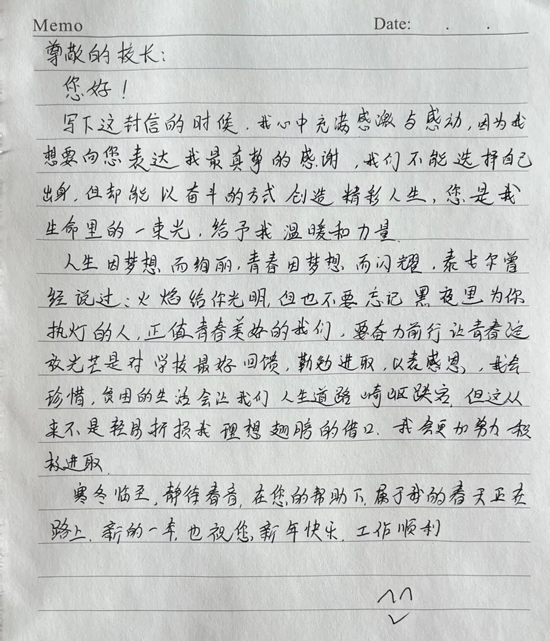 Memo Date: . .
尊敬的校长:
您好!
写下这封信的时候,我心中充满感激与感动,因为我
想要向您表达我最真挚的感谢,我们不能选择自己
出身,但却能以奋斗的方式创造精彩人生,您是我
生命里的一束光,给予我温暖和力量.
人生因梦想而绚丽,青春因梦想而闪耀,泰戈尔曾
经说过:火焰给你光明,但也不要忘记黑夜里为你
执灯的人,正值青春美好的我们,要奋力前行让青春绽
放光芒是对学校最好回馈,勤勉进取,以表感恩,我会
珍惜,贫困的生活会让我们人生道路崎岖跌宕,但这从
来不是轻易折损我理想翅膀的借口.我会更加努力积
极进取.
寒冬临至,静待春音,在您的帮助下,属于我的春天正在
路上.新的一年也祝您,新年快乐,工作顺利